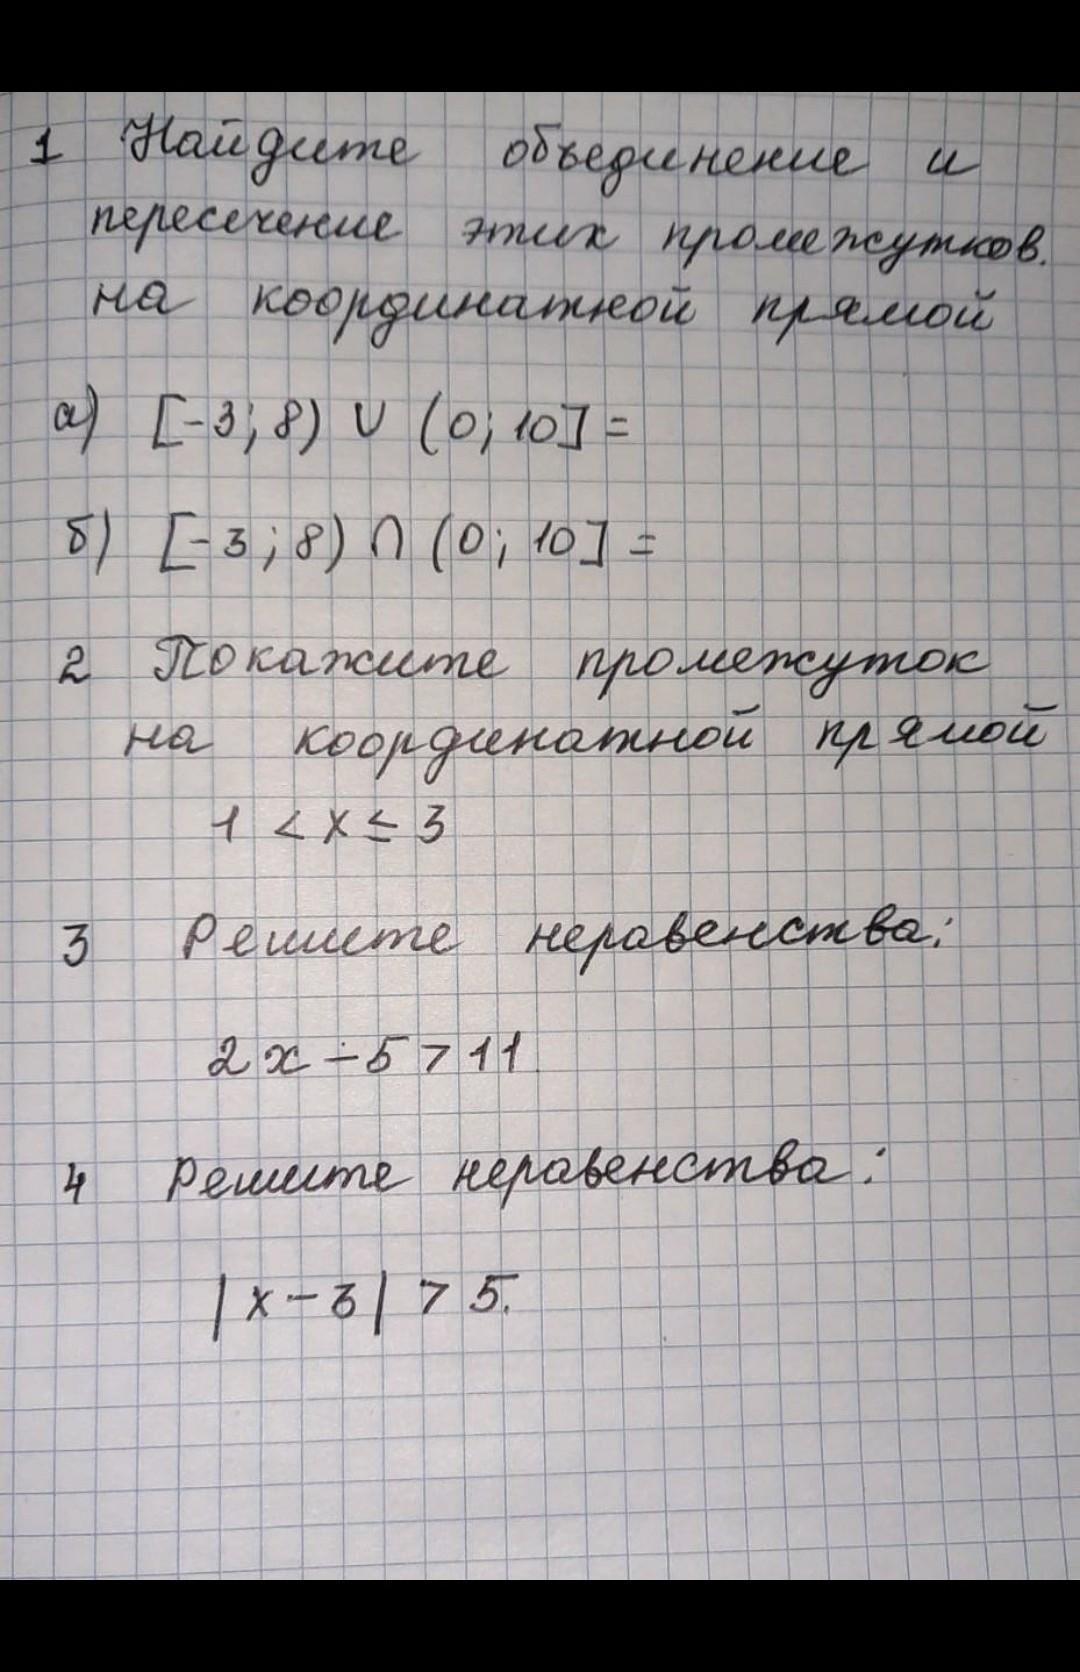 1 Найдите объединение и
пересечение этих промежутков.
на координатной прямой
а) [-3; 8) ∪ (0; 10] =
б) [-3; 8) ∩ (0; 10] =
2 Покажите промежуток
на координатной прямой
1 < x ≤ 3
3 Решите неравенства:
2x - 5 > 11
4 Решите неравенства:
|x - 3| > 5.